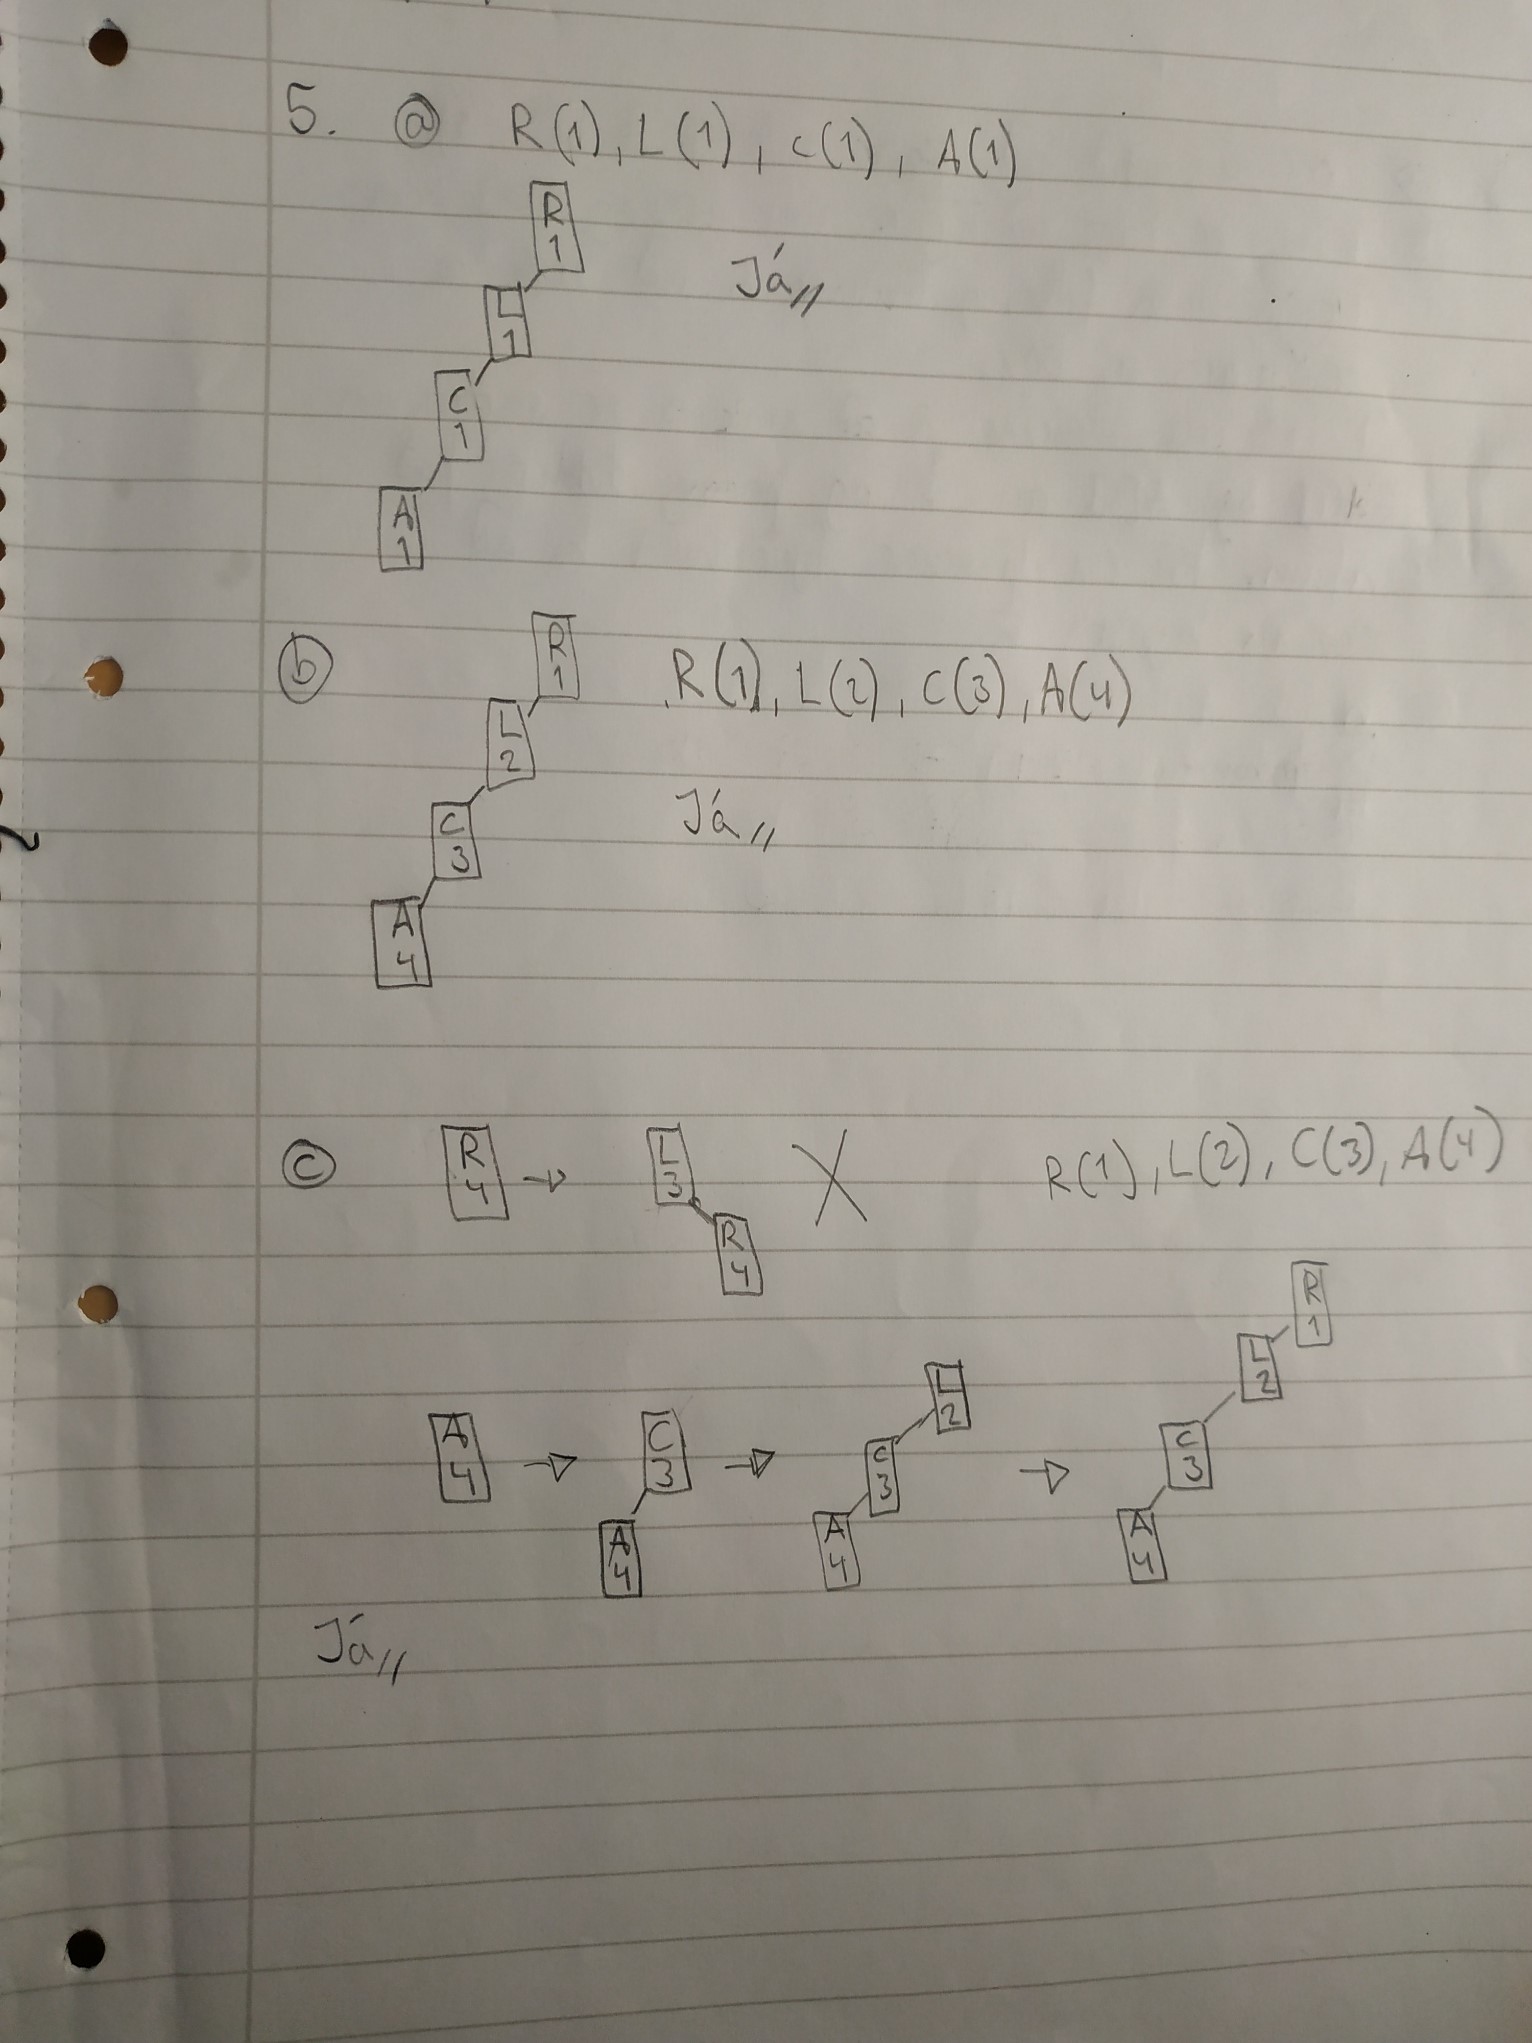 5. ⓐ R(1), L(1), C(1), A(1)
R
1
Já,,
L
1
C
1
A
1
ⓑ
R
1
R(1), L(2), C(3), A(4)
L
2
Já,,
C
3
A
4
ⓒ
R
4
→
L
3
R
4
X
R(1), L(2), C(3), A(4)
A
4
→
C
3
A
4
→
L
2
C
3
A
4
→
R
1
L
2
C
3
A
4
Já,,